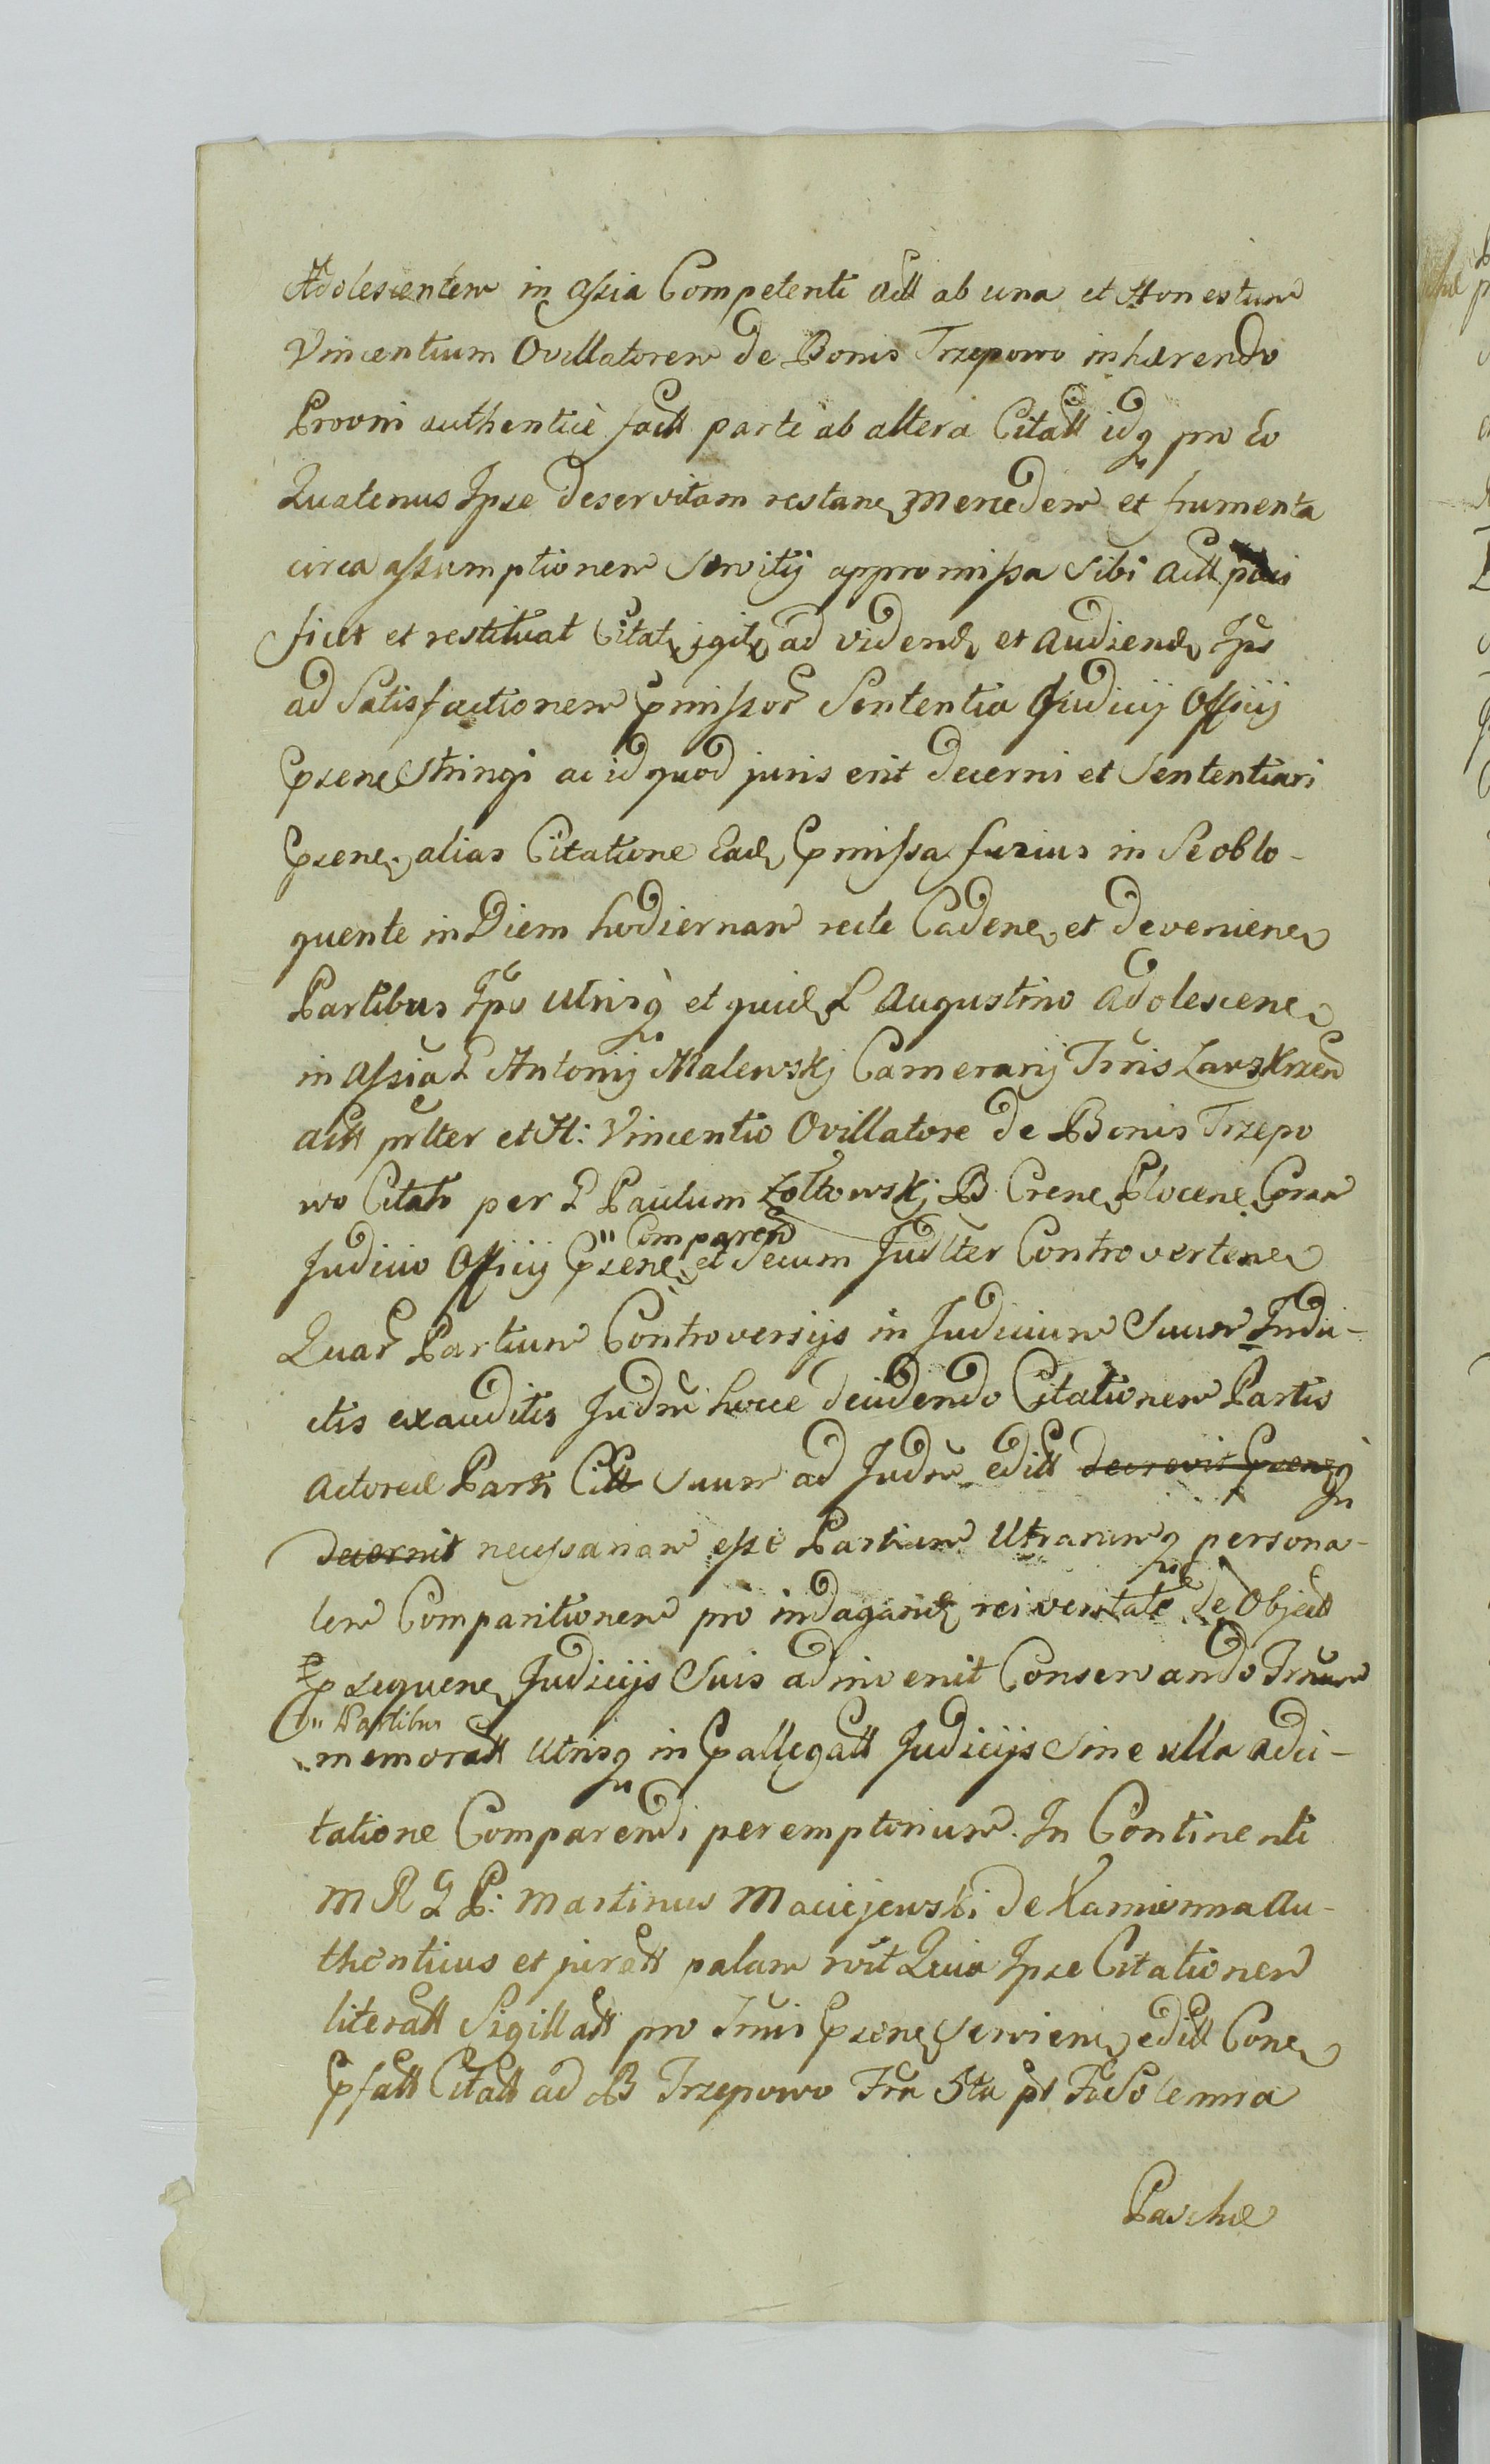 Adolescentem in assia Competenti Act ab una et Honestum
Vincentium Ovillatorem de Bonis Trzepowo inhærendo
Provni authenticè fact parte ab altera Citatt idq pro Eo
Quatenus Ipse deservitam restanc Mercedem et frumenta
circa assumptionem Servitij appromissa Sibi Actt
ficet et restituat Citatt igitr ad vidend et Audiend Ips
ad Satisfactionem Pmissor Sententia Judicij Officij
Psenc Stringi ac id quod juris erit decerni et Sententiari
Psenc. alias Citatione Ead Pmissa fusius in Se oblo-
quente in Diem hodiernam recte Cadenc et devenienc
Partibus Ips Utrisq et quid L Augustino Adolescenc
in assia L Antonij Malewskj Camerarij Trris Zawskrzen
Actt prlter et H: Vincentio Ovillatore de Bonis Trzepo
wo Citato per L Paulum Zołtowskj B. Crenc Plocenc Coram
Comparen
Judicio Officij Psenc et Secum Judlter Controvertenc
Quar Partium Controversijs in Judicium Suum Indu-
ctis exauditis Judm hocce decidendo Citationem Partis
Actoreæ Parti Citt Suum ad Judm editt decrevit Psenq
Decernit necessariam esse Partium Utrarumq persona-
lem Comparitionem pro indagand rei veritate de Object
Psequenc Judicijs Suis adinvenit Conservando Trnum
Partibus
memoratt Utrisq in Pallegatt Judicijs Sine ulla adci-
tatione Comparendi peremptorium. In Continenti
M R G P: Martinus Maciejewski de Kamionna Au-
thenticus et juratt palam rvit Quia Ipse Citationem
literatt Sigillatt pro Trmi Psenc Servienc editt Conc
Pfatt Citatt ad B Trzepowo Fra 5ta pt Fa Solennia
Paschæ